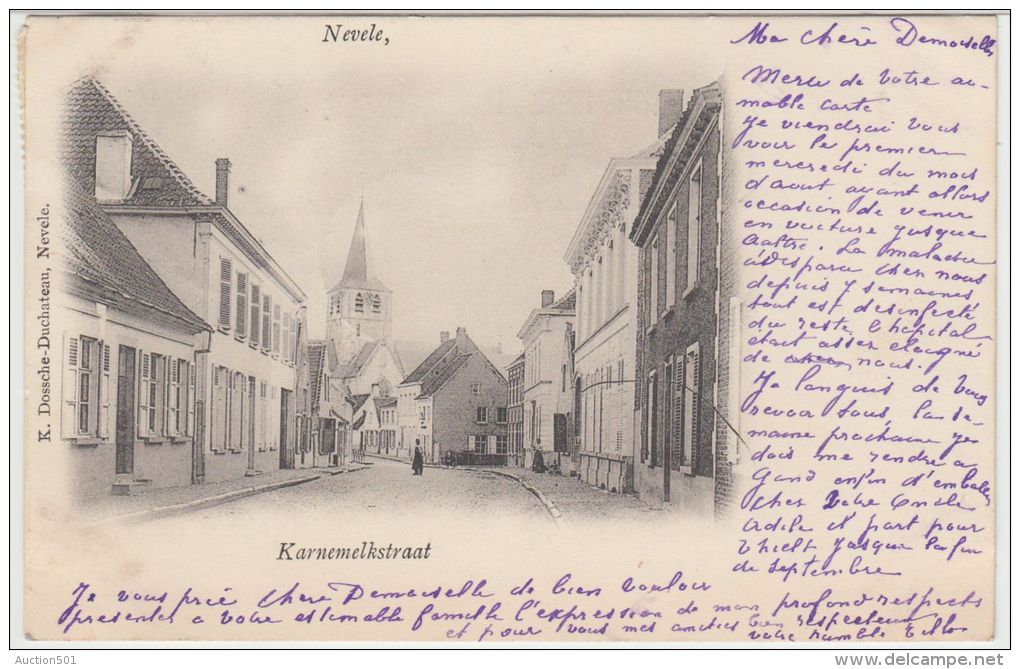 Nevele,
K. Dossche-Duchateau, Nevele.
Karnemelkstraat
Ma chère Demoiselle
Merci de votre ai-
mable carte
Je viendrai vous
voir le premier
mercredi du mois
d'aout ayant alors
occasion de venir
en voiture jusque
Aaltre. La maladie
a disparu chez nous
depuis 7 semaines
tout est desinfecté
du reste l'hôpital
était assez eloigné
de nous.
Je languis de vous
revoir tous, la se-
maine prochaine je
dois me rendre a
Gand enfin d'emballer
chez votre Oncle
et part pour
Thielt jusque la fin
de septembre
Je vous prie chère Demoiselle de bien vouloir
presenter a votre estimable famille l'expression de mon profond respects
et pour vous mes amitiés bien respectueux
votre humble
Auction501
www.delcampe.net